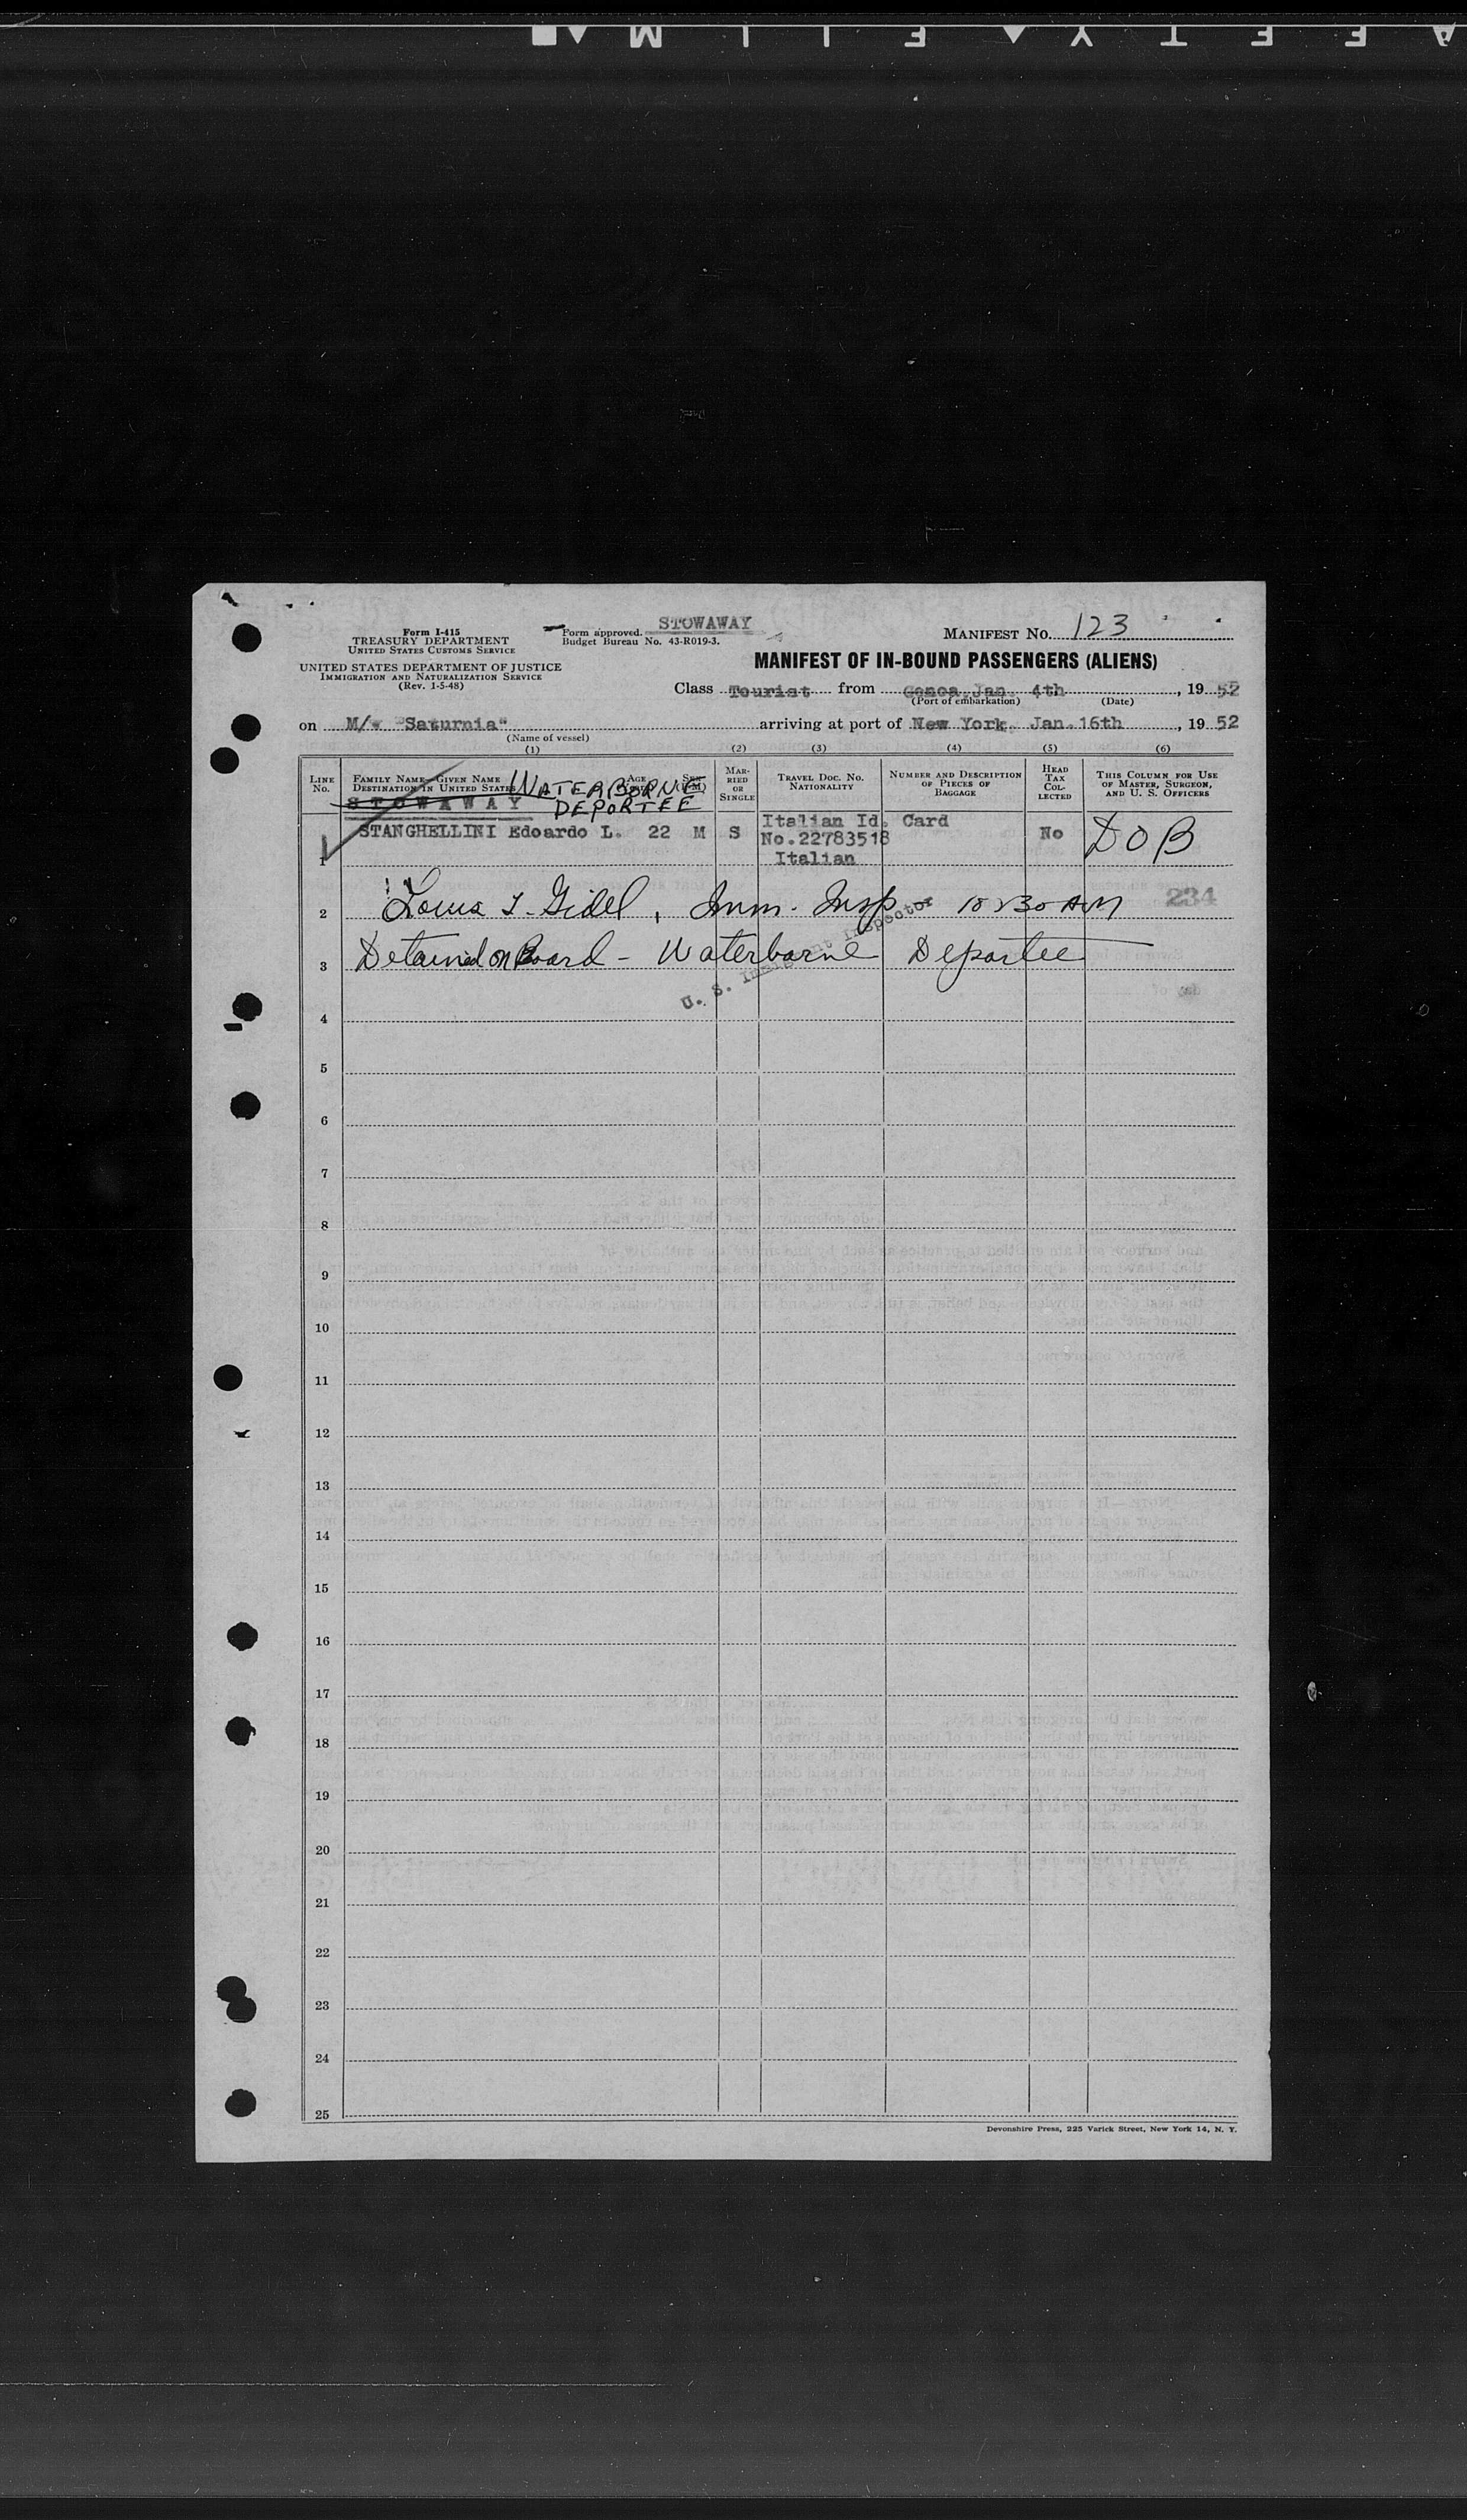 SAFETY FILM
STOWAWAY
Form I-415
TREASURY DEPARTMENT
UNITED STATES CUSTOMS SERVICE
UNITED STATES DEPARTMENT OF JUSTICE
IMMIGRATION AND NATURALIZATION SERVICE
(Rev. 1-5-48)
Form approved.
Budget Bureau No. 43-R019-3.
MANIFEST NO. 123
MANIFEST OF IN-BOUND PASSENGERS (ALIENS)
Class Tourist from Genoa, Jan. 4th, 1952
(Port of embarkation) (Date)
on M/v "Saturnia" arriving at port of New York, Jan. 16th, 1952
(Name of vessel)
(1) (2) (3) (4) (5) (6)
LINE NO.
FAMILY NAME—GIVEN NAME
DESTINATION IN UNITED STATES
AGE
SEX
MARRIED OR SINGLE
TRAVEL DOC. NO.
NATIONALITY
NUMBER AND DESCRIPTION OF PIECES OF BAGGAGE
HEAD TAX COLLECTED
THIS COLUMN FOR USE OF MASTER, SURGEON, AND U. S. OFFICERS
WATERBORNE
DEPORTEE
STOWAWAY
1 STANGHELLINI Edoardo L. 22 M S Italian Id. Card No.22783518 Italian No DOB
2 Gidel, Imm. Insp 10:30 AM 234
3 Detained on Board - Waterborne Deportee
U. S. Immigrant Inspector
4
5
6
7
8
9
10
11
12
13
14
15
16
17
18
19
20
21
22
23
24
25
Devonshire Press, 225 Varick Street, New York 14, N. Y.